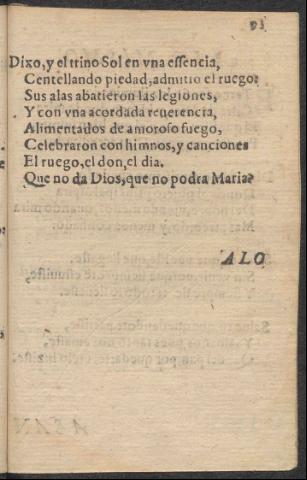 93
Dixo, y el trino Sol en vna essencia,
Centellando piedad, admitio el ruego:
Sus alas abatieron las legiones,
Y con vna acordada reuerencia,
Alimentados de amoroso fuego,
Celebraron con himnos, y canciones
El ruego, el don, el dia.
Que no da Dios, que no podra Maria?
ALO